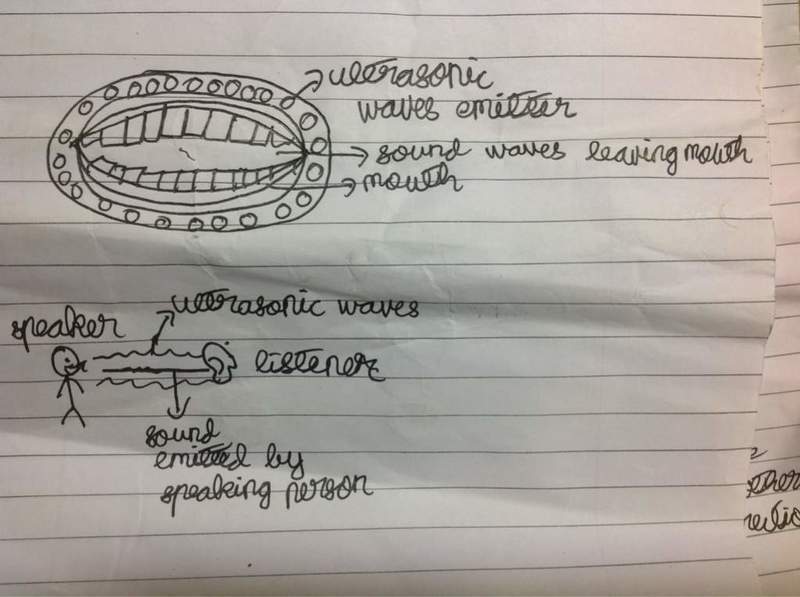 ultrasonic
waves emitter
sound waves leaving mouth
mouth
ultrasonic waves
speaker
listener
sound
emitted by
speaking person